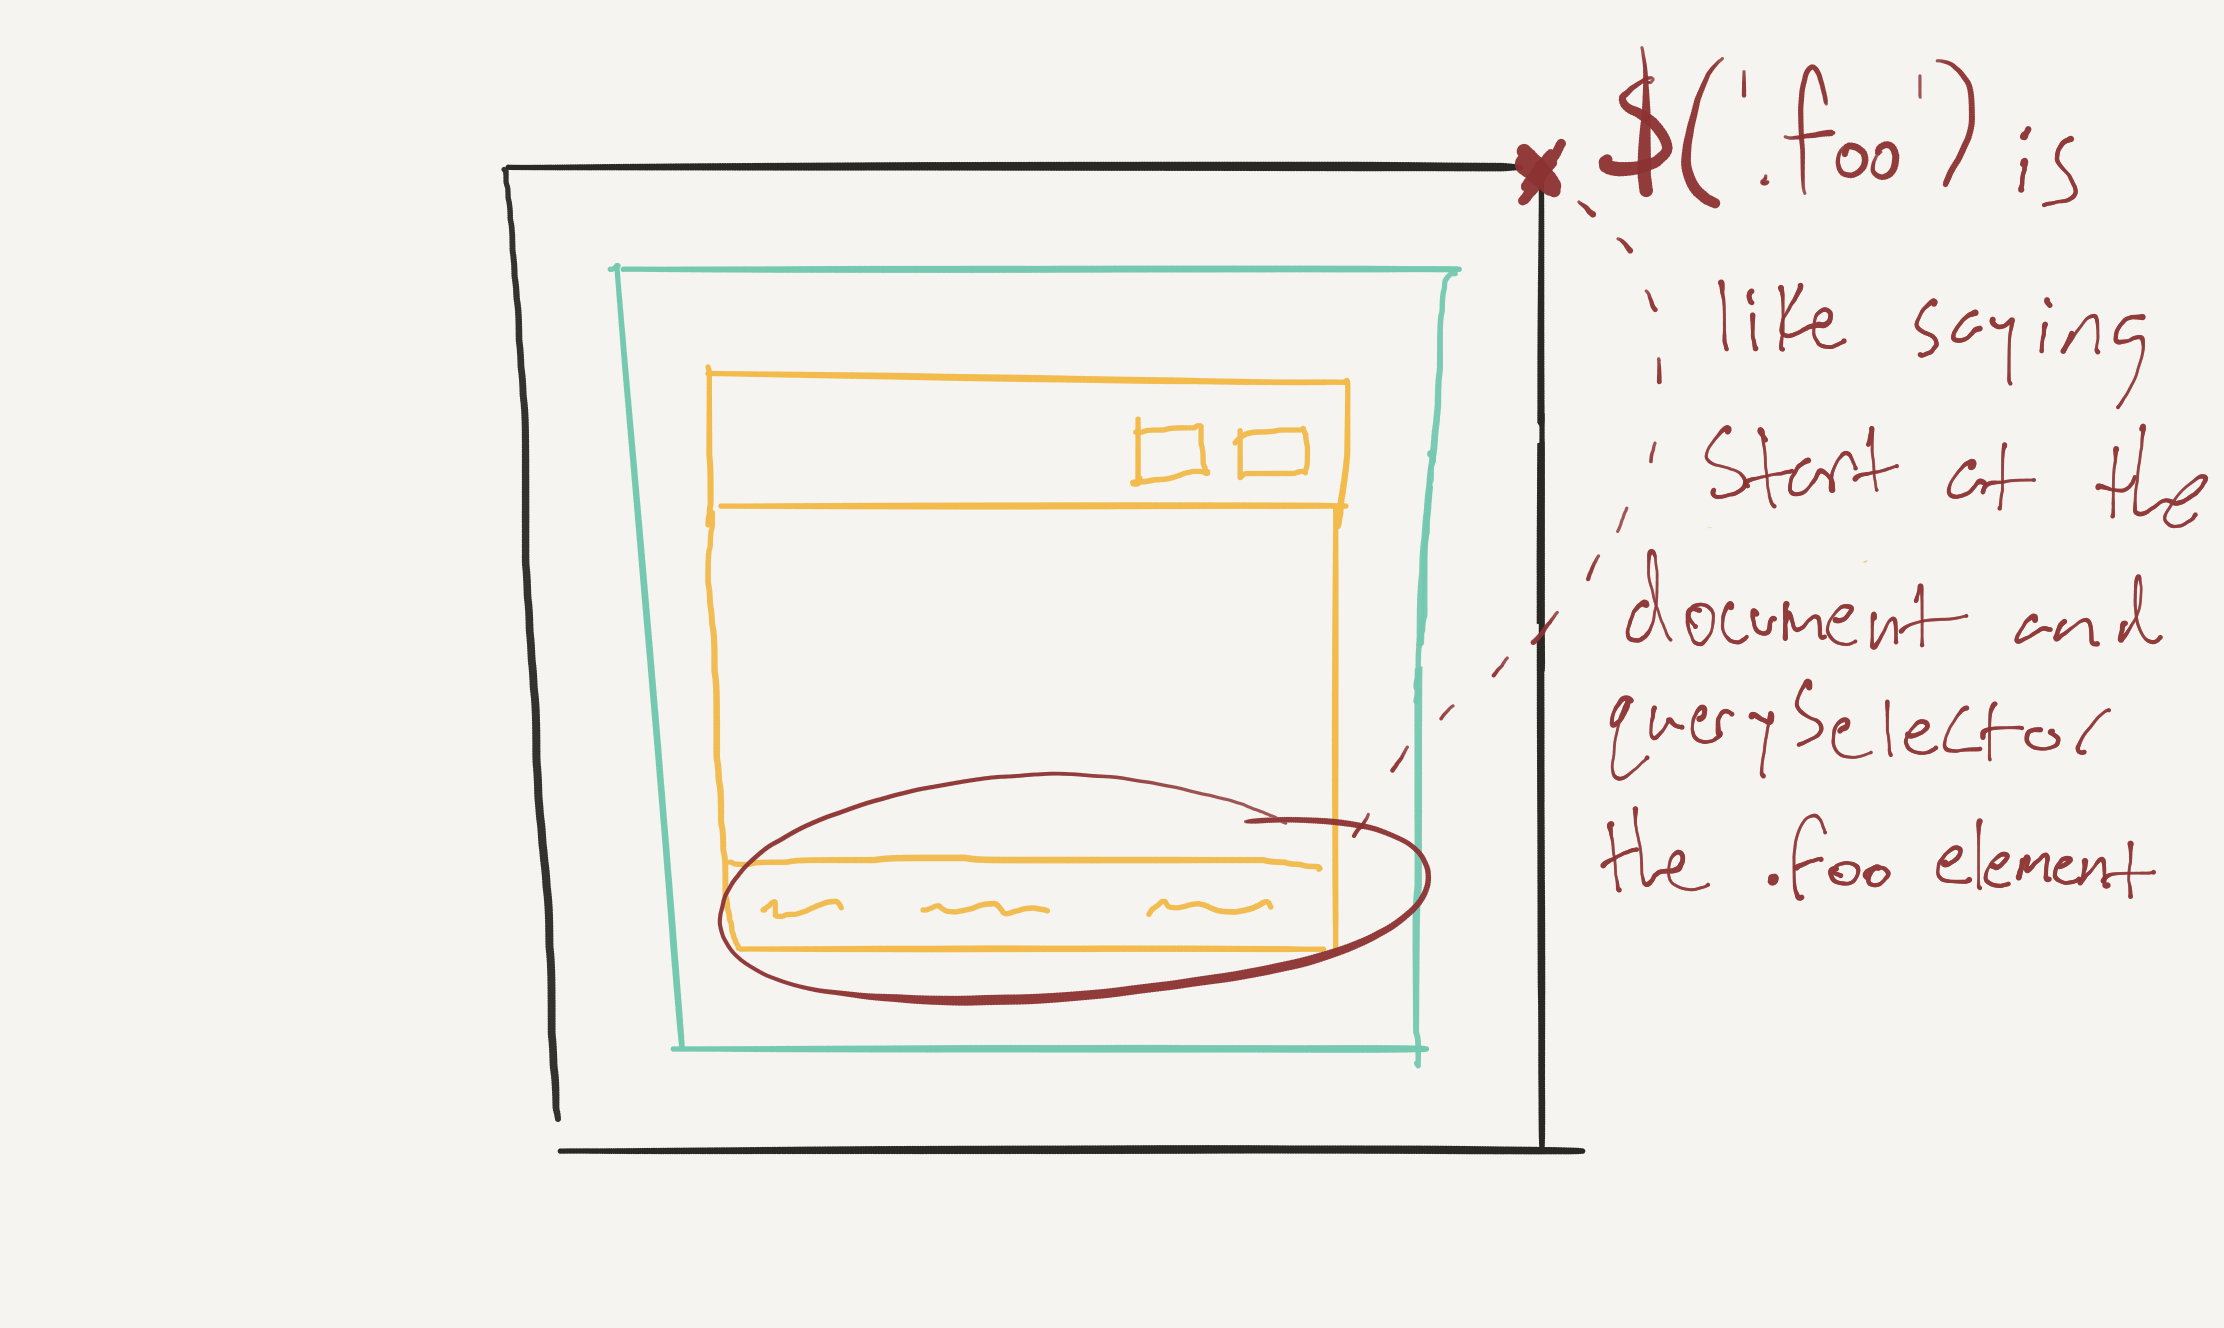 $('.foo') is
like saying
Start at the
document and
querySelector
the .foo element